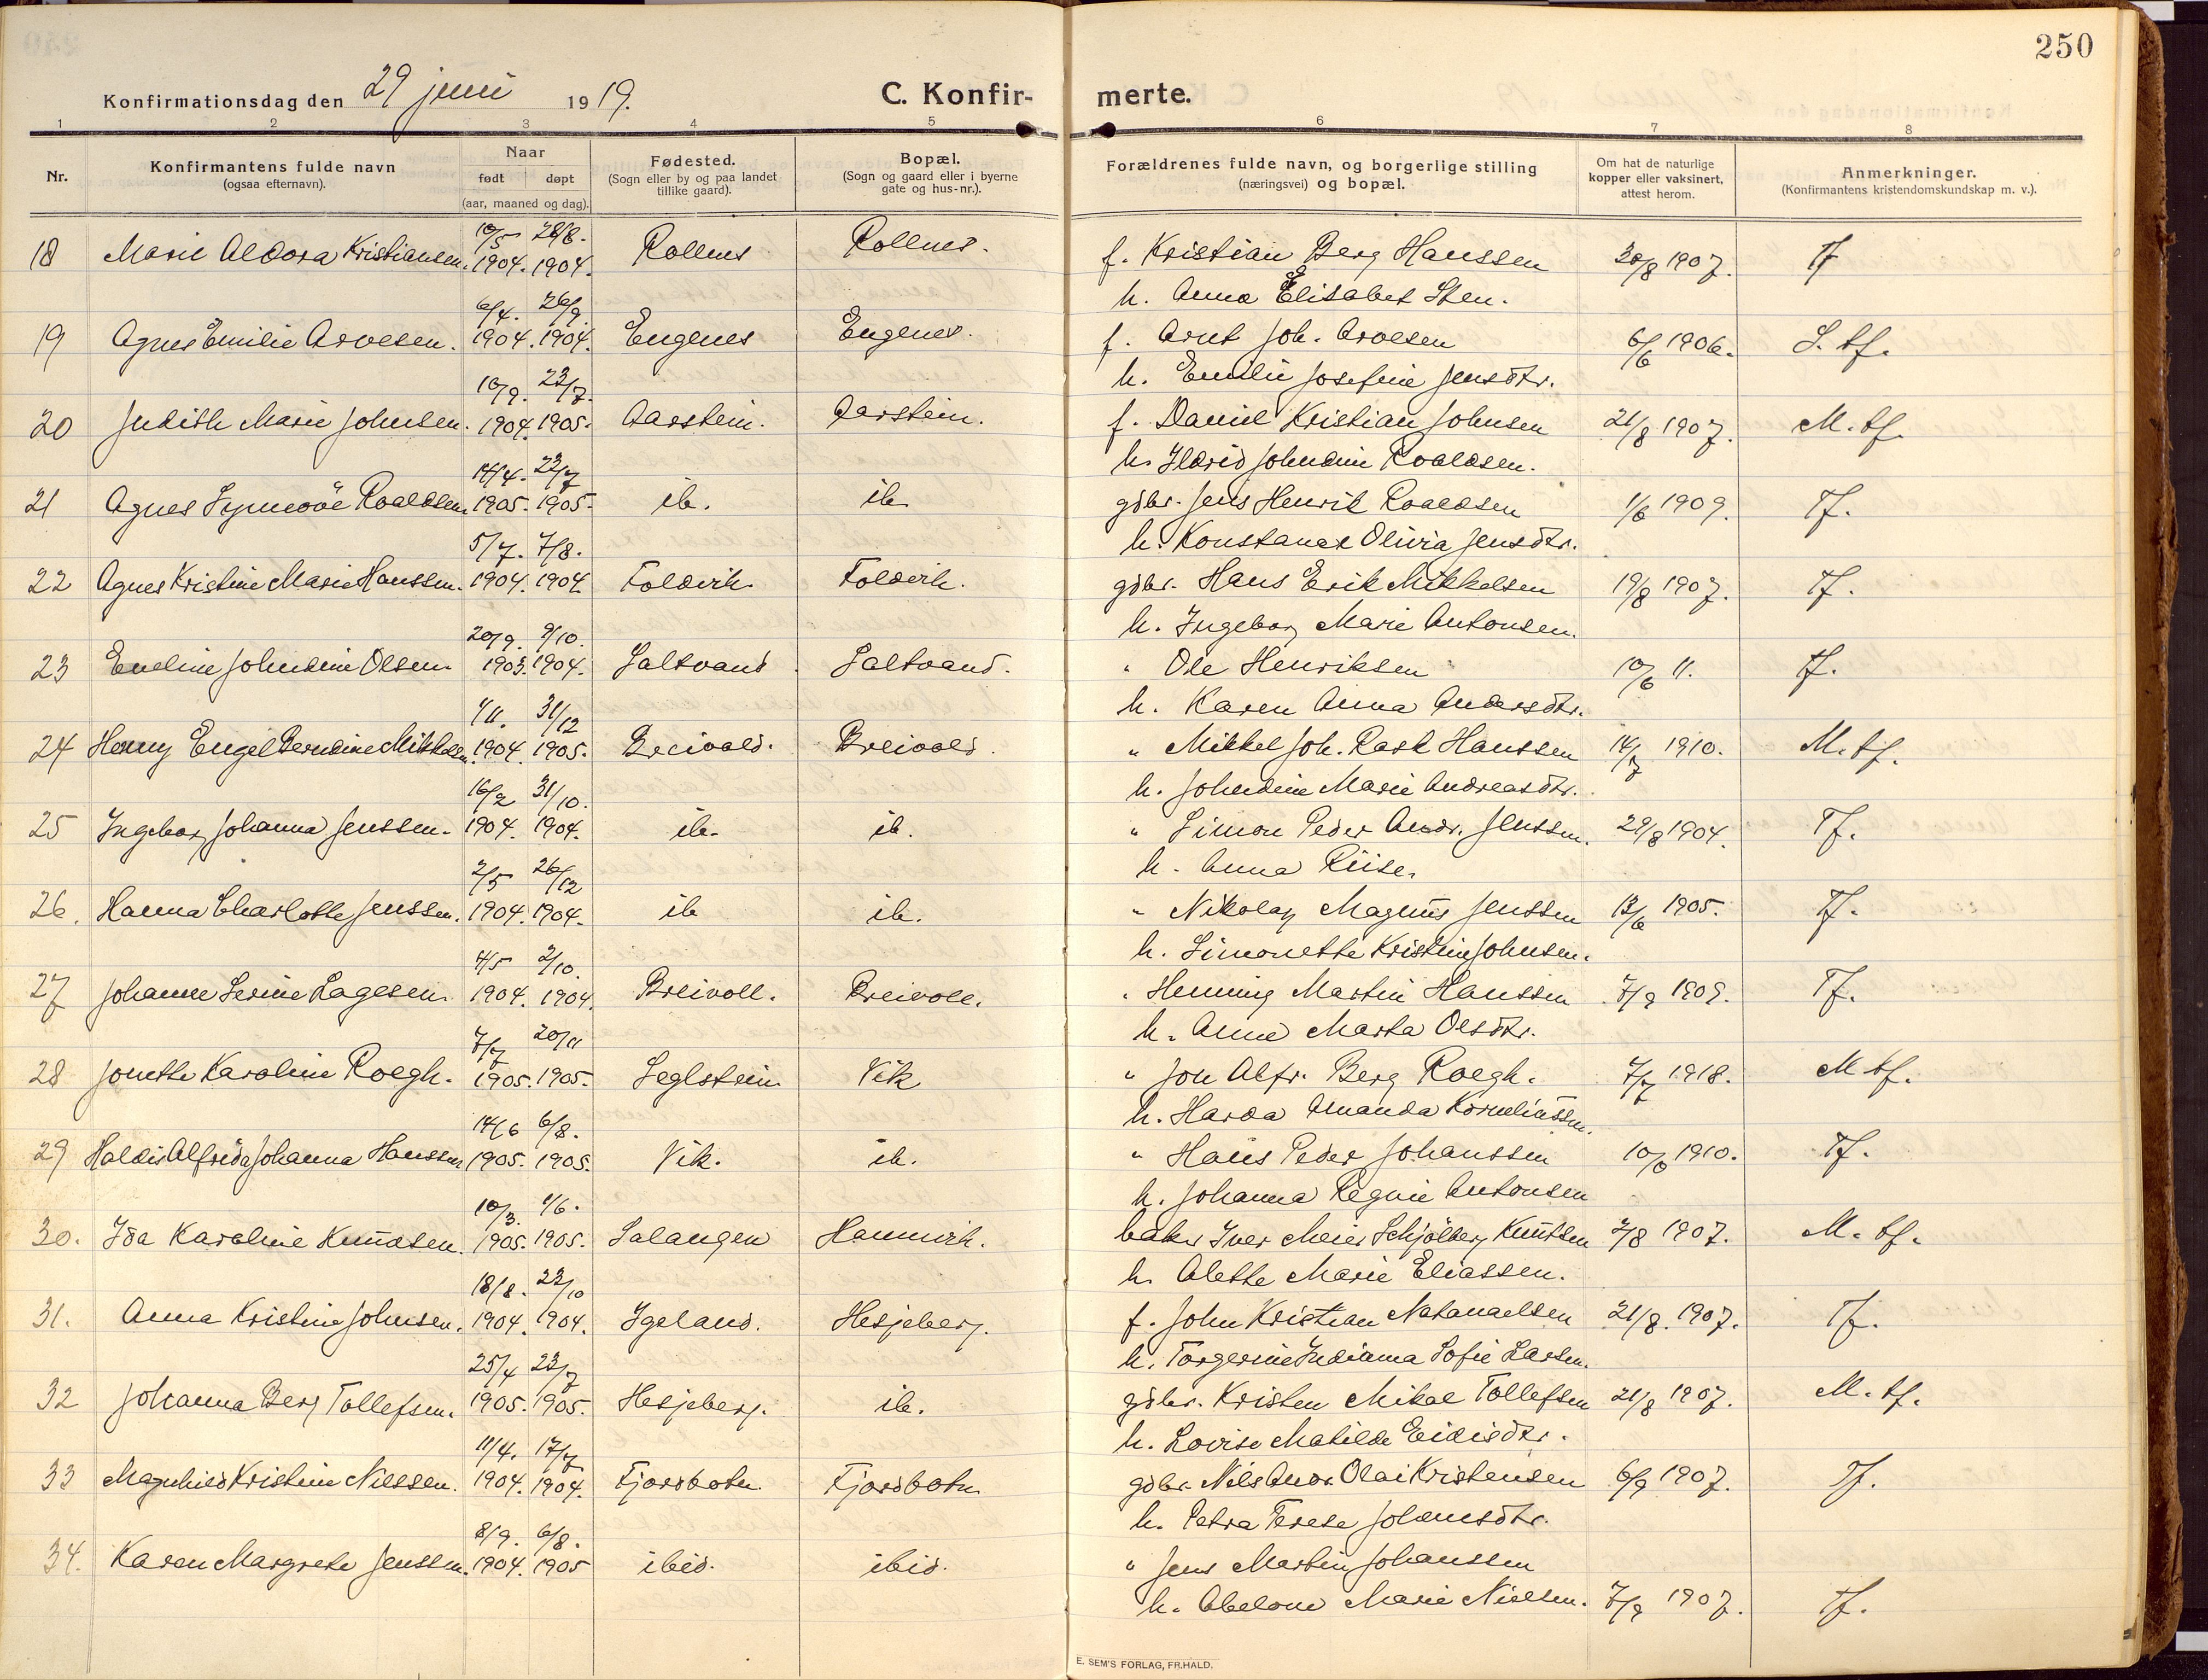 250
Konfirmationsdag den 29 juni 1919.
C. Konfir-
merte.
1 2 3 4 5 6 7 8
Nr.
Konfirmantens fulde navn
(ogsaa efternavn).
Naar
født døpt
(aar, maaned og dag).
Fødested.
(Sogn eller by og paa landet
tillike gaard).
Bopæl.
(Sogn og gaard eller i byerne
gate og hus-nr.).
Forældrenes fulde navn, og borgerlige stilling
(næringsvei) og bopæl.
Om hat de naturlige
kopper eller vaksinert,
attest herom.
Anmerkninger.
(Konfirmantens kristendomskundskap m. v.).
10/5 28/8.
18 Marie Aldora Kristiansen. 1904. 1904. Rollnes Rollnes. f. Kristian Berg Hanssen 20/8 1907. Tf
h. Anna Elisabet Sten.
6/4. 26/9.
19 Agnes Emilie Arvesen. 1904. 1904. Engenes Engenes. f. Arnt Joh. Arvesen 6/6 1906. S. tf.
h. Emilie Josefine Jensdtr.
10/9. 23/7.
20 Judith Marie Johnsen. 1904. 1905. Aarstein. Aarstein. f. Daniel Kristian Johnsen 21/8 1907. M. tf.
h. Johndine Roaldsen.
14/4. 23/7
21 Agnes Synnøve Roaldsen. 1905. 1905. ib. ib. gdbr. Jens Henrik Roaldsen 1/6 1909. Tf.
h. Konstanse Olivia Jensdtr.
5/7. 7/8.
22 Agnes Kristine Marie Hanssen. 1904. 1904 Foldvik. Foldvik. gdbr. Hans Erik Mikkelsen 19/8 1907. Tf.
h. Ingeborg Marie Antonsen.
20/9. 9/10.
23 Eveline Johndine Olsen. 1903. 1904. Saltvand Saltvand. " Ole Henriksen 10/6 11. tf.
h. Karen Anna Andersdtr.
1/11. 31/12
24 Henny Engel Berndine Mikkelsen. 1904. 1905. Breivold. Breivold. " Mikkel Joh. Rask Hanssen 14/7 1910. M. tf.
h. Johndine Marie Andreasdtr.
16/2 31/10.
25 Ingeborg Johanna Jenssen. 1904. 1904. ib. ib. " Simon Peder Andr. Jenssen. 29/8 1904. Tf.
h. Anna Riise.
2/5 26/12
26. Hanna Charlotte Jenssen. 1904. 1904. ib ib. " Nikolay Magnus Jenssen 13/6 1905. Tf.
h. Simonette Kristine Johnsen.
4/5 2/10.
27 Johanne Serine Lagesen. 1904. 1904. Breivoll. Breivoll. " Henning Martin Hanssen 7/9 1909. Tf.
h. Anne Marta Olsdtr.
7/7 20/11
28 Jonette Karoline Roegh. 1905. 1905. Seglstein Vik " Jon Alfr. Berg Roegh. 7/7 1918. M tf.
h. Harda Amanda Korneliussen.
14/6 6/8.
29 Haldis Alfrida Johanna Hanssen 1905. 1905. Vik. ib. " Hans Peder Johanssen 10/8 1910. Tf.
h. Johanna Regine Antonsen
10/3. 1/6.
30. Ida Karoline Knudsen. 1905. 1905. Salangen Hamnvik. baker Iver Meier Schjølberg Knutsen 2/8 1907. M. tf.
h. Alette Marie Eliassen.
18/8. 23/10
31. Anna Kristine Johnsen. 1904. 1904. Igeland. Hesjeberg. f. John Kristian Natanaelsen 21/8. 1907. Tf.
h. Torgerine Indianna Sofie Larsen.
25/4 23/7
32 Johanna Berg Tollefsen. 1905. 1905. Hesjeberg. ib. gdbr. Kristen Mikal Tollefsen 21/8 1907. M. tf.
h. Lovise Matilde Eidisdtr.
11/4. 17/7
33 Magnhild Kristine Nilssen. 1904. 1904. Fjordbotn Fjordbotn gdbr. Nils Andr. Olai Kristensen 6/9 1907. Tf.
h. Petra Terese Johansdtr.
8/9. 6/8.
34. Karen Margrete Jenssen. 1904. 1905 ibid. ibid. " Jens Martin Johanssen
h. Abelone Marie Nielsen. 7/9 1907. Tf.
E. SEM'S FORLAG, FR.HALD.